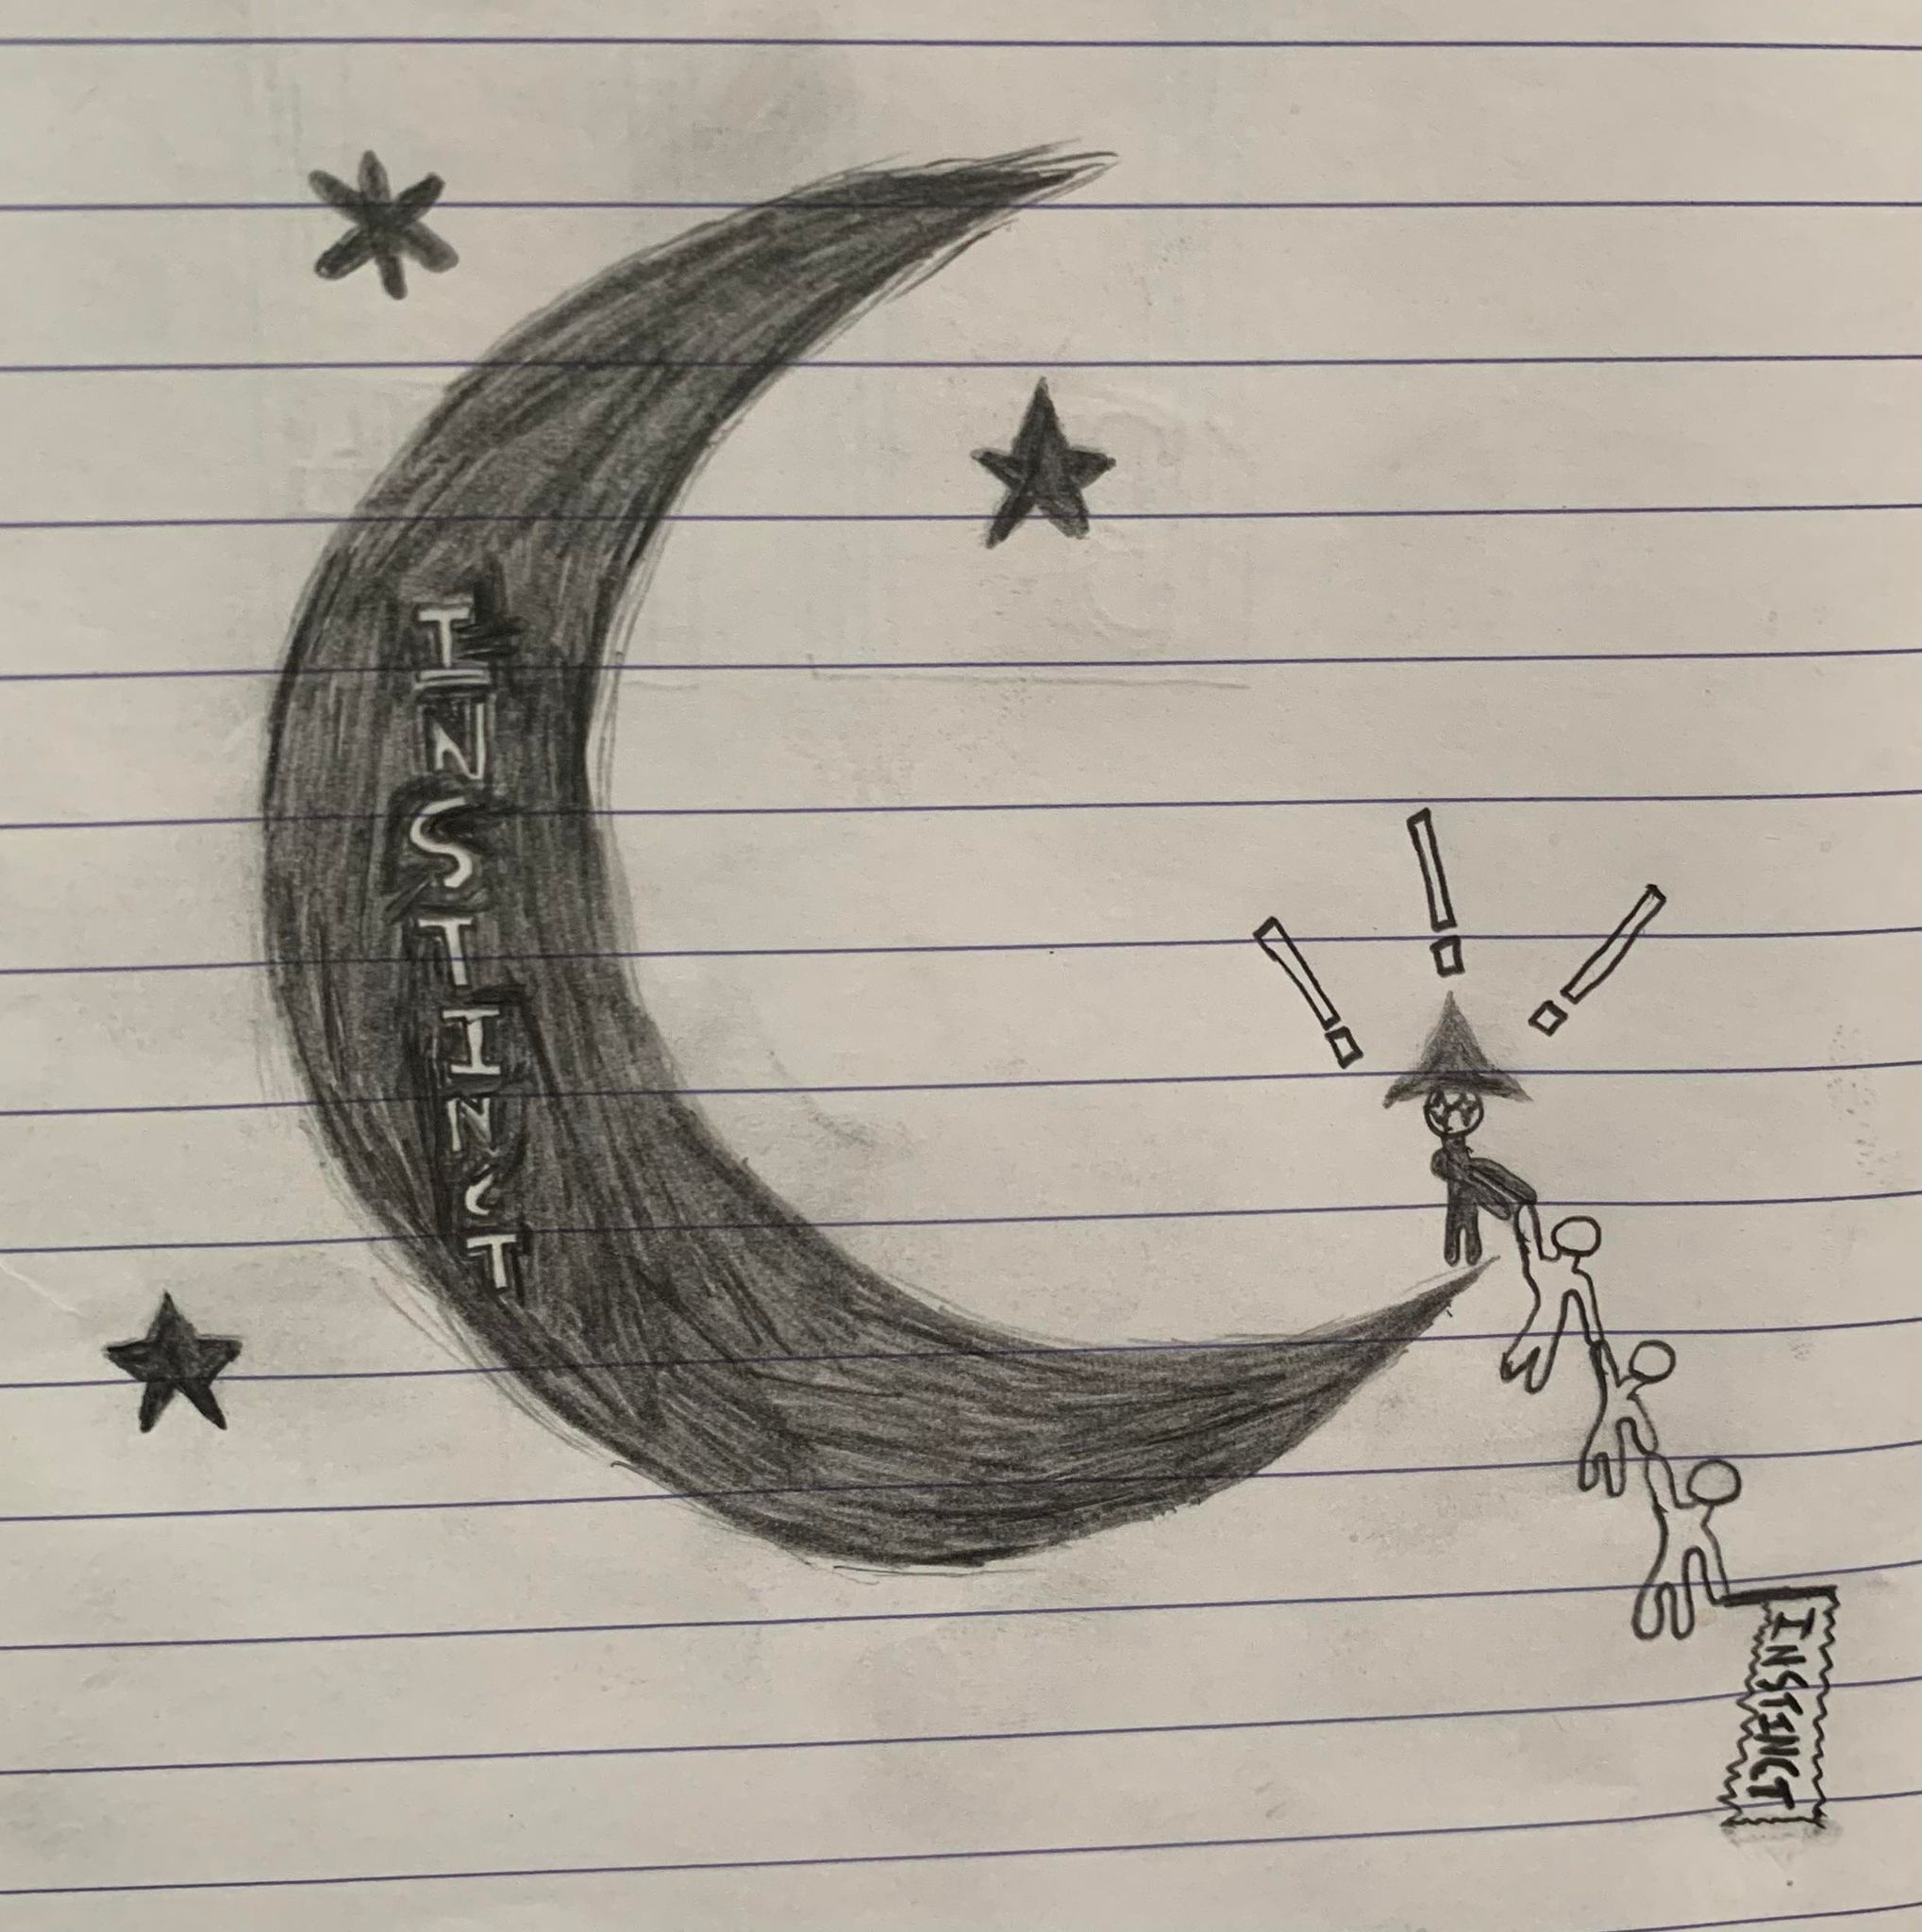 INSTINCT
! ! !
INSTINCT